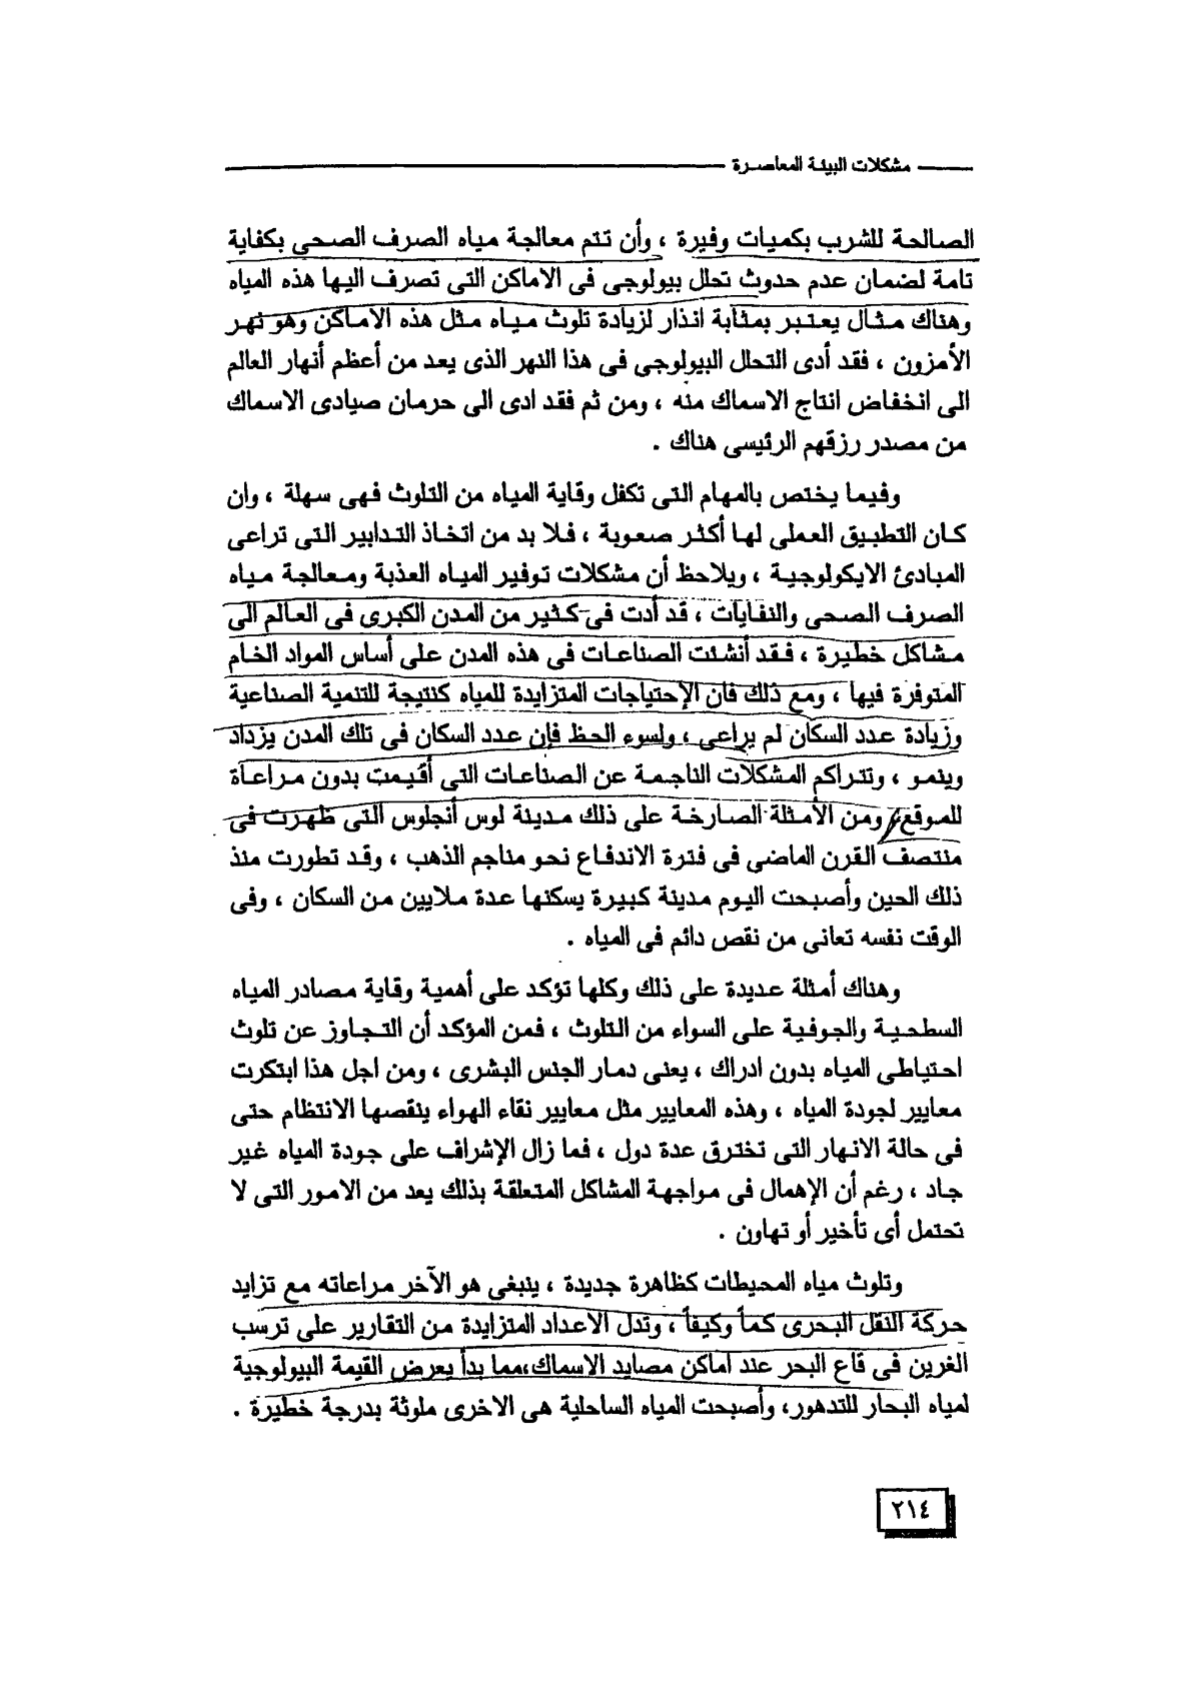 مشكلات البيئة المعاصرة
الصالحة للشرب بكميات وفيرة ، وأن تتم معالجة مياه الصرف الصحى بكفاية
تامة لضمان عدم حدوث تحلل بيولوجى فى الاماكن التى تصرف اليها هذه المياه
وهناك مثال يعتبر بمثابة انذار لزيادة تلوث مياه مثل هذه الاماكن وهو نهر
الأمزون ، فقد أدى التحلل البيولوجى فى هذا النهر الذى يعد من أعظم أنهار العالم
الى انخفاض انتاج الاسماك منه ، ومن ثم فقد ادى الى حرمان صيادى الاسماك
من مصدر رزقهم الرئيسى هناك .
وفيما يختص بالمهام التى تكفل وقاية المياه من التلوث فهى سهلة ، وان
كان التطبيق العملى لها أكثر صعوبة ، فلا بد من اتخاذ التدابير التى تراعى
المبادئ الايكولوجية ، ويلاحظ أن مشكلات توفير المياه العذبة ومعالجة مياه
الصرف الصحى والنفايات ، قد أدت فى كثير من المدن الكبرى فى العالم الى
مشاكل خطيرة ، فقد أنشئت الصناعات فى هذه المدن على أساس المواد الخام
المتوفرة فيها ، ومع ذلك فان الإحتياجات المتزايدة للمياه كنتيجة للتنمية الصناعية
وزيادة عدد السكان لم يراعى ، ولسوء الحظ فإن عدد السكان فى تلك المدن يزداد
وينمو ، وتتراكم المشكلات الناجمة عن الصناعات التى أقيمت بدون مراعاة
للموقع ومن الأمثلة الصارخة على ذلك مدينة لوس أنجلوس التى ظهرت فى
منتصف القرن الماضى فى فترة الاندفاع نحو مناجم الذهب ، وقد تطورت منذ
ذلك الحين وأصبحت اليوم مدينة كبيرة يسكنها عدة ملايين من السكان ، وفى
الوقت نفسه تعانى من نقص دائم فى المياه .
وهناك أمثلة عديدة على ذلك وكلها تؤكد على أهمية وقاية مصادر المياه
السطحية والجوفية على السواء من التلوث ، فمن المؤكد أن التجاوز عن تلوث
احتياطى المياه بدون ادراك ، يعنى دمار الجنس البشرى ، ومن اجل هذا ابتكرت
معايير لجودة المياه ، وهذه المعايير مثل معايير نقاء الهواء ينقصها الانتظام حتى
فى حالة الانهار التى تخترق عدة دول ، فما زال الإشراف على جودة المياه غير
جاد ، رغم أن الإهمال فى مواجهة المشاكل المتعلقة بذلك يعد من الامور التى لا
تحتمل أى تأخير أو تهاون .
وتلوث مياه المحيطات كظاهرة جديدة ، ينبغى هو الآخر مراعاته مع تزايد
حركة النقل البحرى كماً وكيفاً ، وتدل الاعداد المتزايدة من التقارير على ترسب
الغرين فى قاع البحر عند أماكن مصايد الاسماك،مما بدأ يعرض القيمة البيولوجية
لمياه البحار للتدهور، وأصبحت المياه الساحلية هى الاخرى ملوثة بدرجة خطيرة .
٢١٤